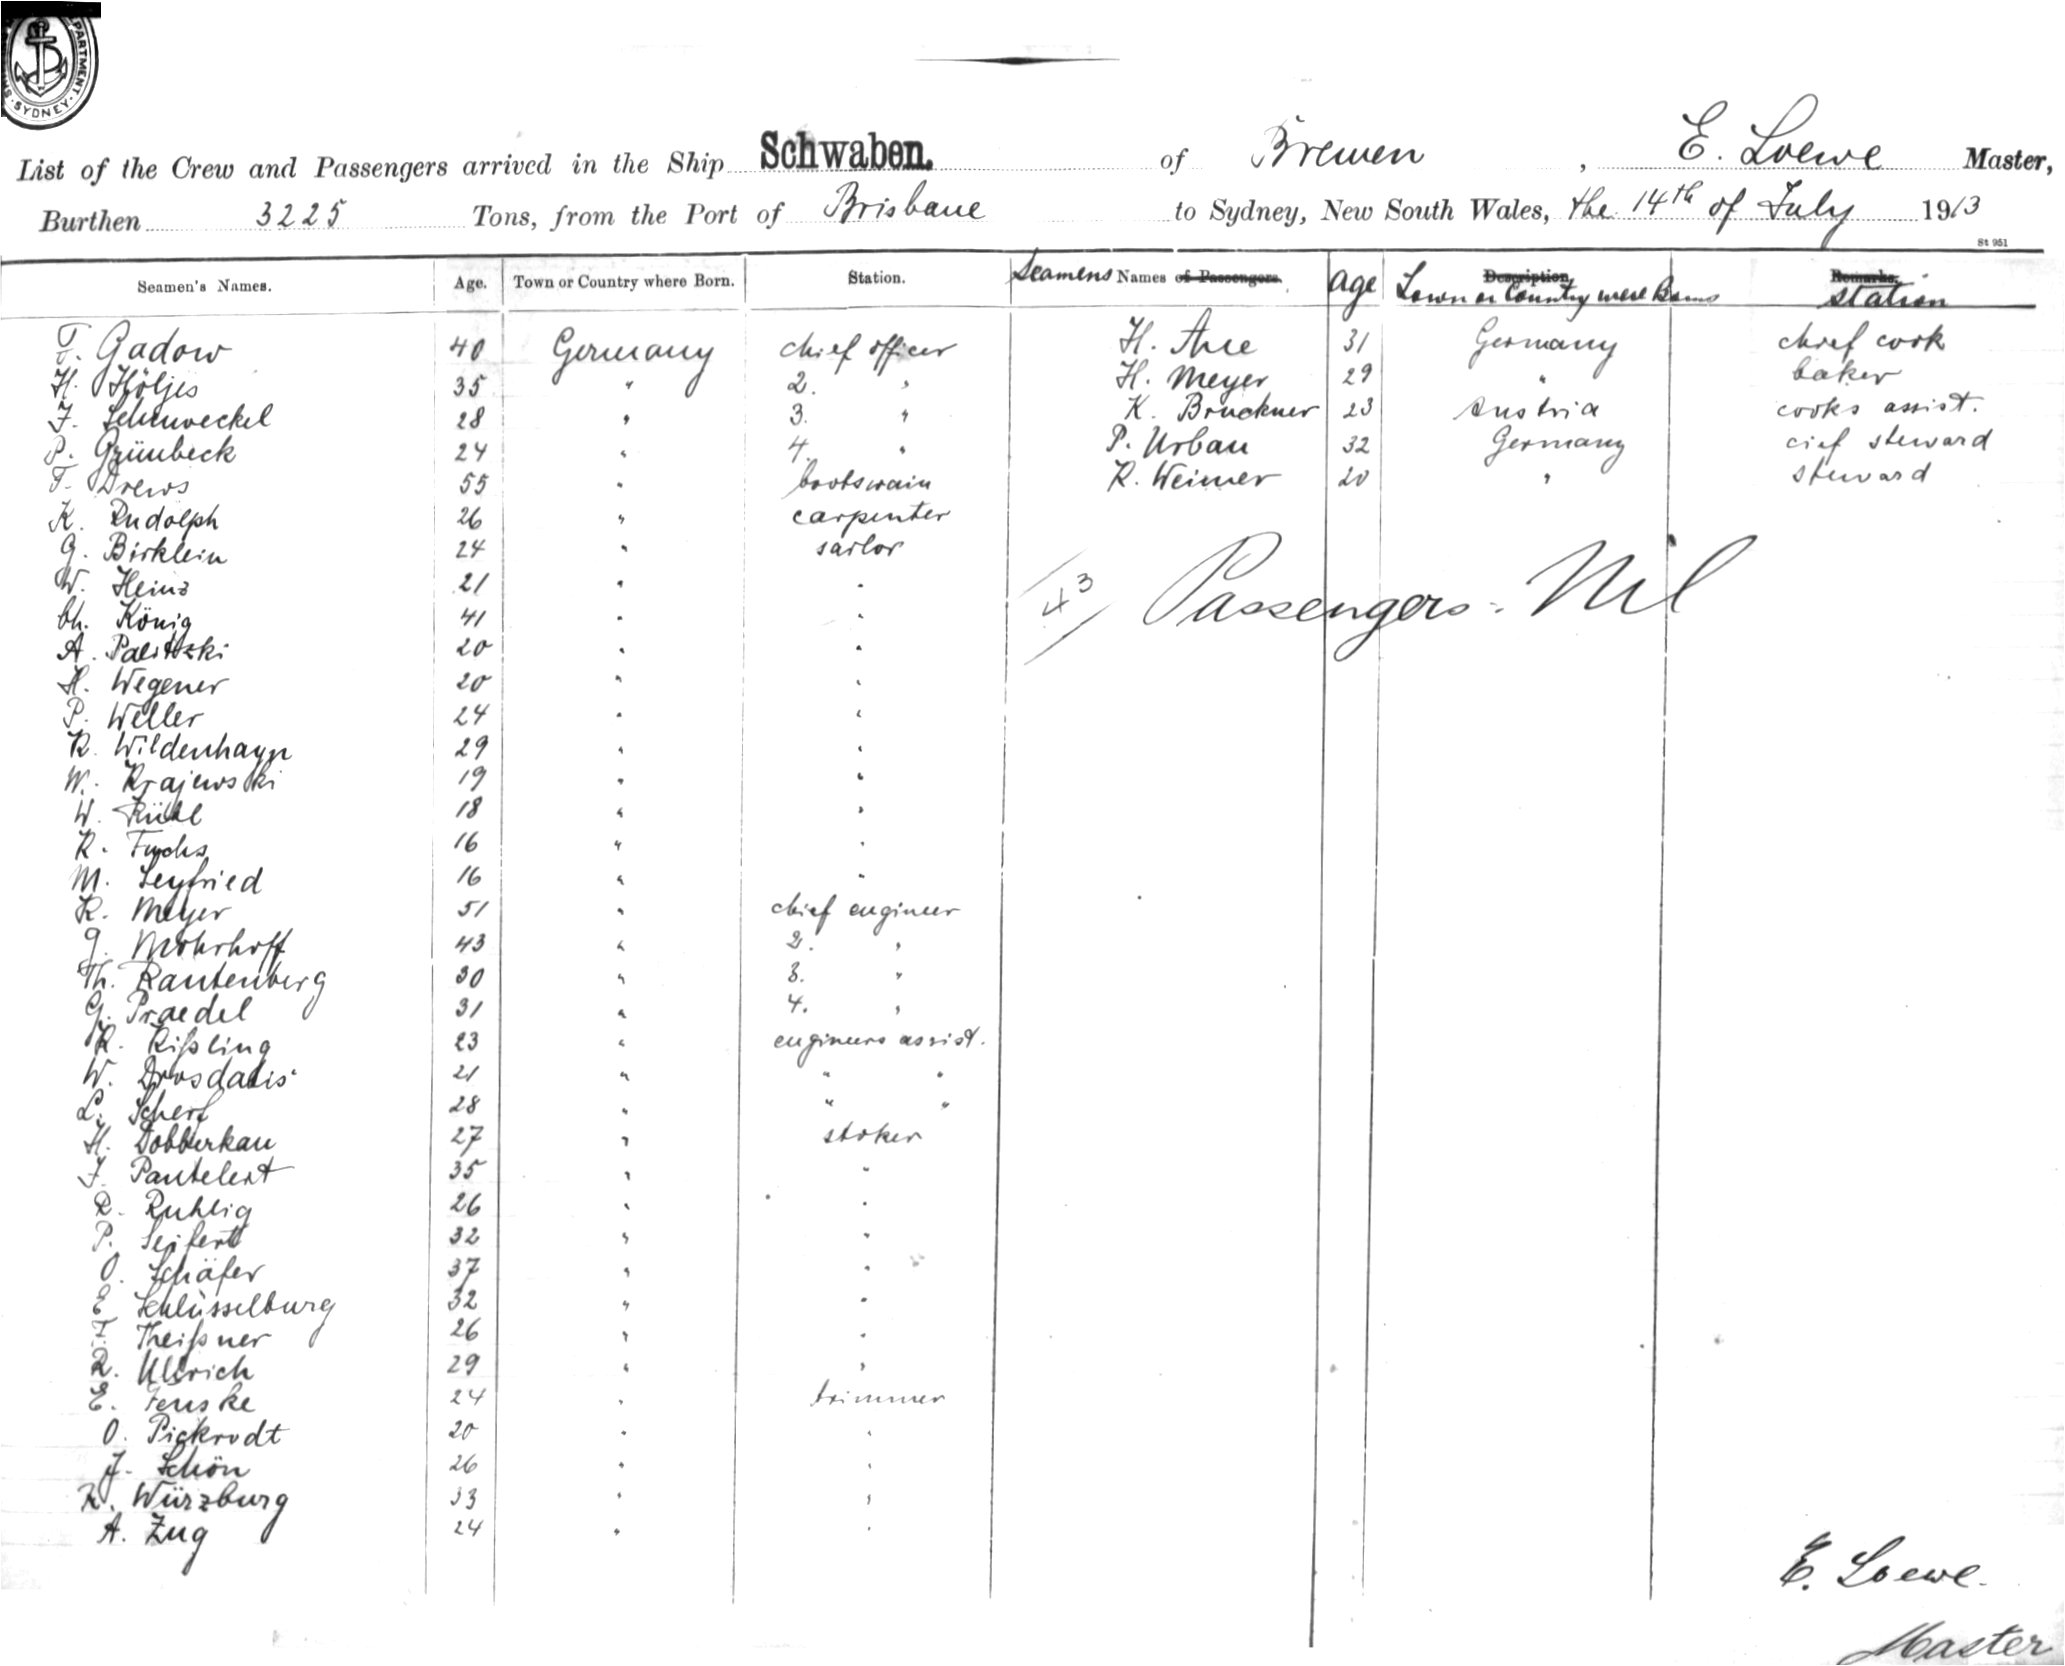 PARTMENT
SYDNEY
List of the Crew and Passengers arrived in the Ship Schwaben. of Bremen, E. Loewe Master,
Burthen 3225 Tons, from the Port of Brisbane to Sydney, New South Wales, the 14th of July 1913
St 951
Seamen's Names. Age. Town or Country where Born. Station. Seamens Names of Passengers. Age Description Town or Country were Borns Remarks. station
F. Gadow 40 Germany chief officer H. Aue 31 Germany chief cook
H. Höljes 35 " 2. " H. Meyer 29 " baker
F. Schinveckel 28 " 3. " K. Bruckner 23 Austria cooks assist.
P. Grünbeck 24 " 4. " P. Urban 32 Germany cief steward
F. Drews 55 " bootswain R. Weimer 20 " steward
K. Rudolph 26 " carpenter
G. Birklein 24 " sailor
W. Heinz 21 " "
Ch. König 41 " "
A. Palitzki 20 " "
43 Passengers: Nil
H. Wegener 20 " "
P. Weller 24 " "
R. Wildenhayn 29 " "
W. Krajewski 19 " "
W. Rühl 18 " "
R. Fuchs 16 " "
M. Seyfried 16 " "
K. Meyer 51 " chief engineer
G. Mohrhoff 43 " 2. "
Th. Rautenberg 30 " 3. "
G. Praedel 31 " 4. "
K. Kißling 23 " engineers assist.
W. 21 " " "
L. Scherf 28 " " "
H. Dobberkau 27 " stoker
F. Pantelent 35 " "
R. Ruhlig 26 " "
P. Seifert 32 " "
O. Schäfer 37 " "
E. Schlüsselburg 32 " "
F. Theißner 26 " "
R. Ullrich 29 " "
E. Fenske 24 " trimmer
O. Pickrodt 20 " "
J. Schön 26 " "
K. Würzburg 33 " "
A. Zug 24 " "
E. Loewe.
Master